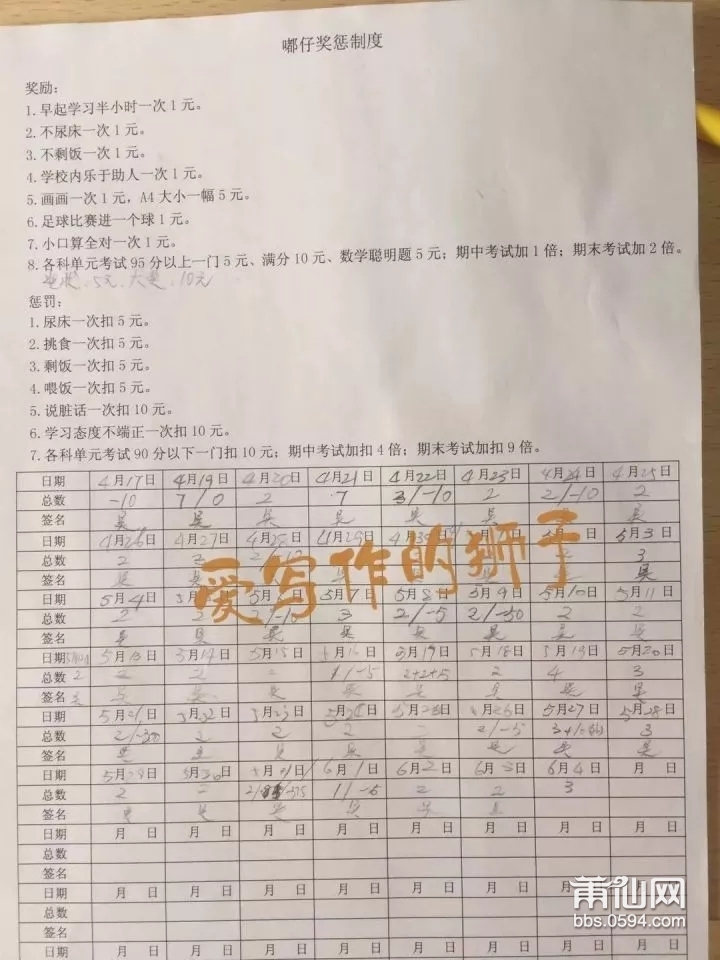 嘟仔奖惩制度
奖励:
1.早起学习半小时一次1元。
2.不尿床一次1元。
3.不剩饭一次1元。
4.学校内乐于助人一次1元。
5.画画一次1元，A4大小一幅5元。
6.足球比赛进一个球1元。
7.小口算全对一次1元。
8.各科单元考试95分以上一门5元、满分10元、数学聪明题5元；期中考试加1倍；期末考试加2倍。
惩罚:
1.尿床一次扣5元。
2.挑食一次扣5元。
3.剩饭一次扣5元。
4.喂饭一次扣5元。
5.说脏话一次扣10元。
6.学习态度不端正一次扣10元。
7.各科单元考试90分以下一门扣10元；期中考试加扣4倍；期末考试加扣9倍。
日期 4月17日 4月19日 4月20日 4月21日 4月22日 4月23日 4月24日 4月25日
总数 -10 7/0 2 7 3/-10 2 2/-10 2
签名
日期 4月26日 4月27日 4月28日 4月29日 5月3日
总数 2 2 3
签名
爱写作的狮子
日期 5月4日 5月7日 5月8日 5月9日 5月10日 5月11日
总数 2 2 2/-10 3 2/-5 2/-50 2 2
签名
日期 5月13日 5月14日 5月15日 5月18日 5月19日 5月20日
总数 2 2 1/-5 2+2+5 2 4 3
签名
日期 5月21日 5月22日 5月23日 5月26日 5月27日 5月28日
总数 2 2 2 2/-5 3
签名
日期 5月29日 5月30日 5月31日 6月1日 6月2日 6月3日 6月4日 月 日
总数 2 2 1/-5 2 2 3
签名
日期 月 日 月 日 月 日 月 日 月 日 月 日 月 日 月 日
总数
签名
日期 月 日 月 日 月 日 月 日 月 日 月 日 月 日 月 日
总数
签名
日期 月 日 月 日 月 日 月 日 月 日 月 日 月 日 月 日
莆仙网
bbs.0594.com